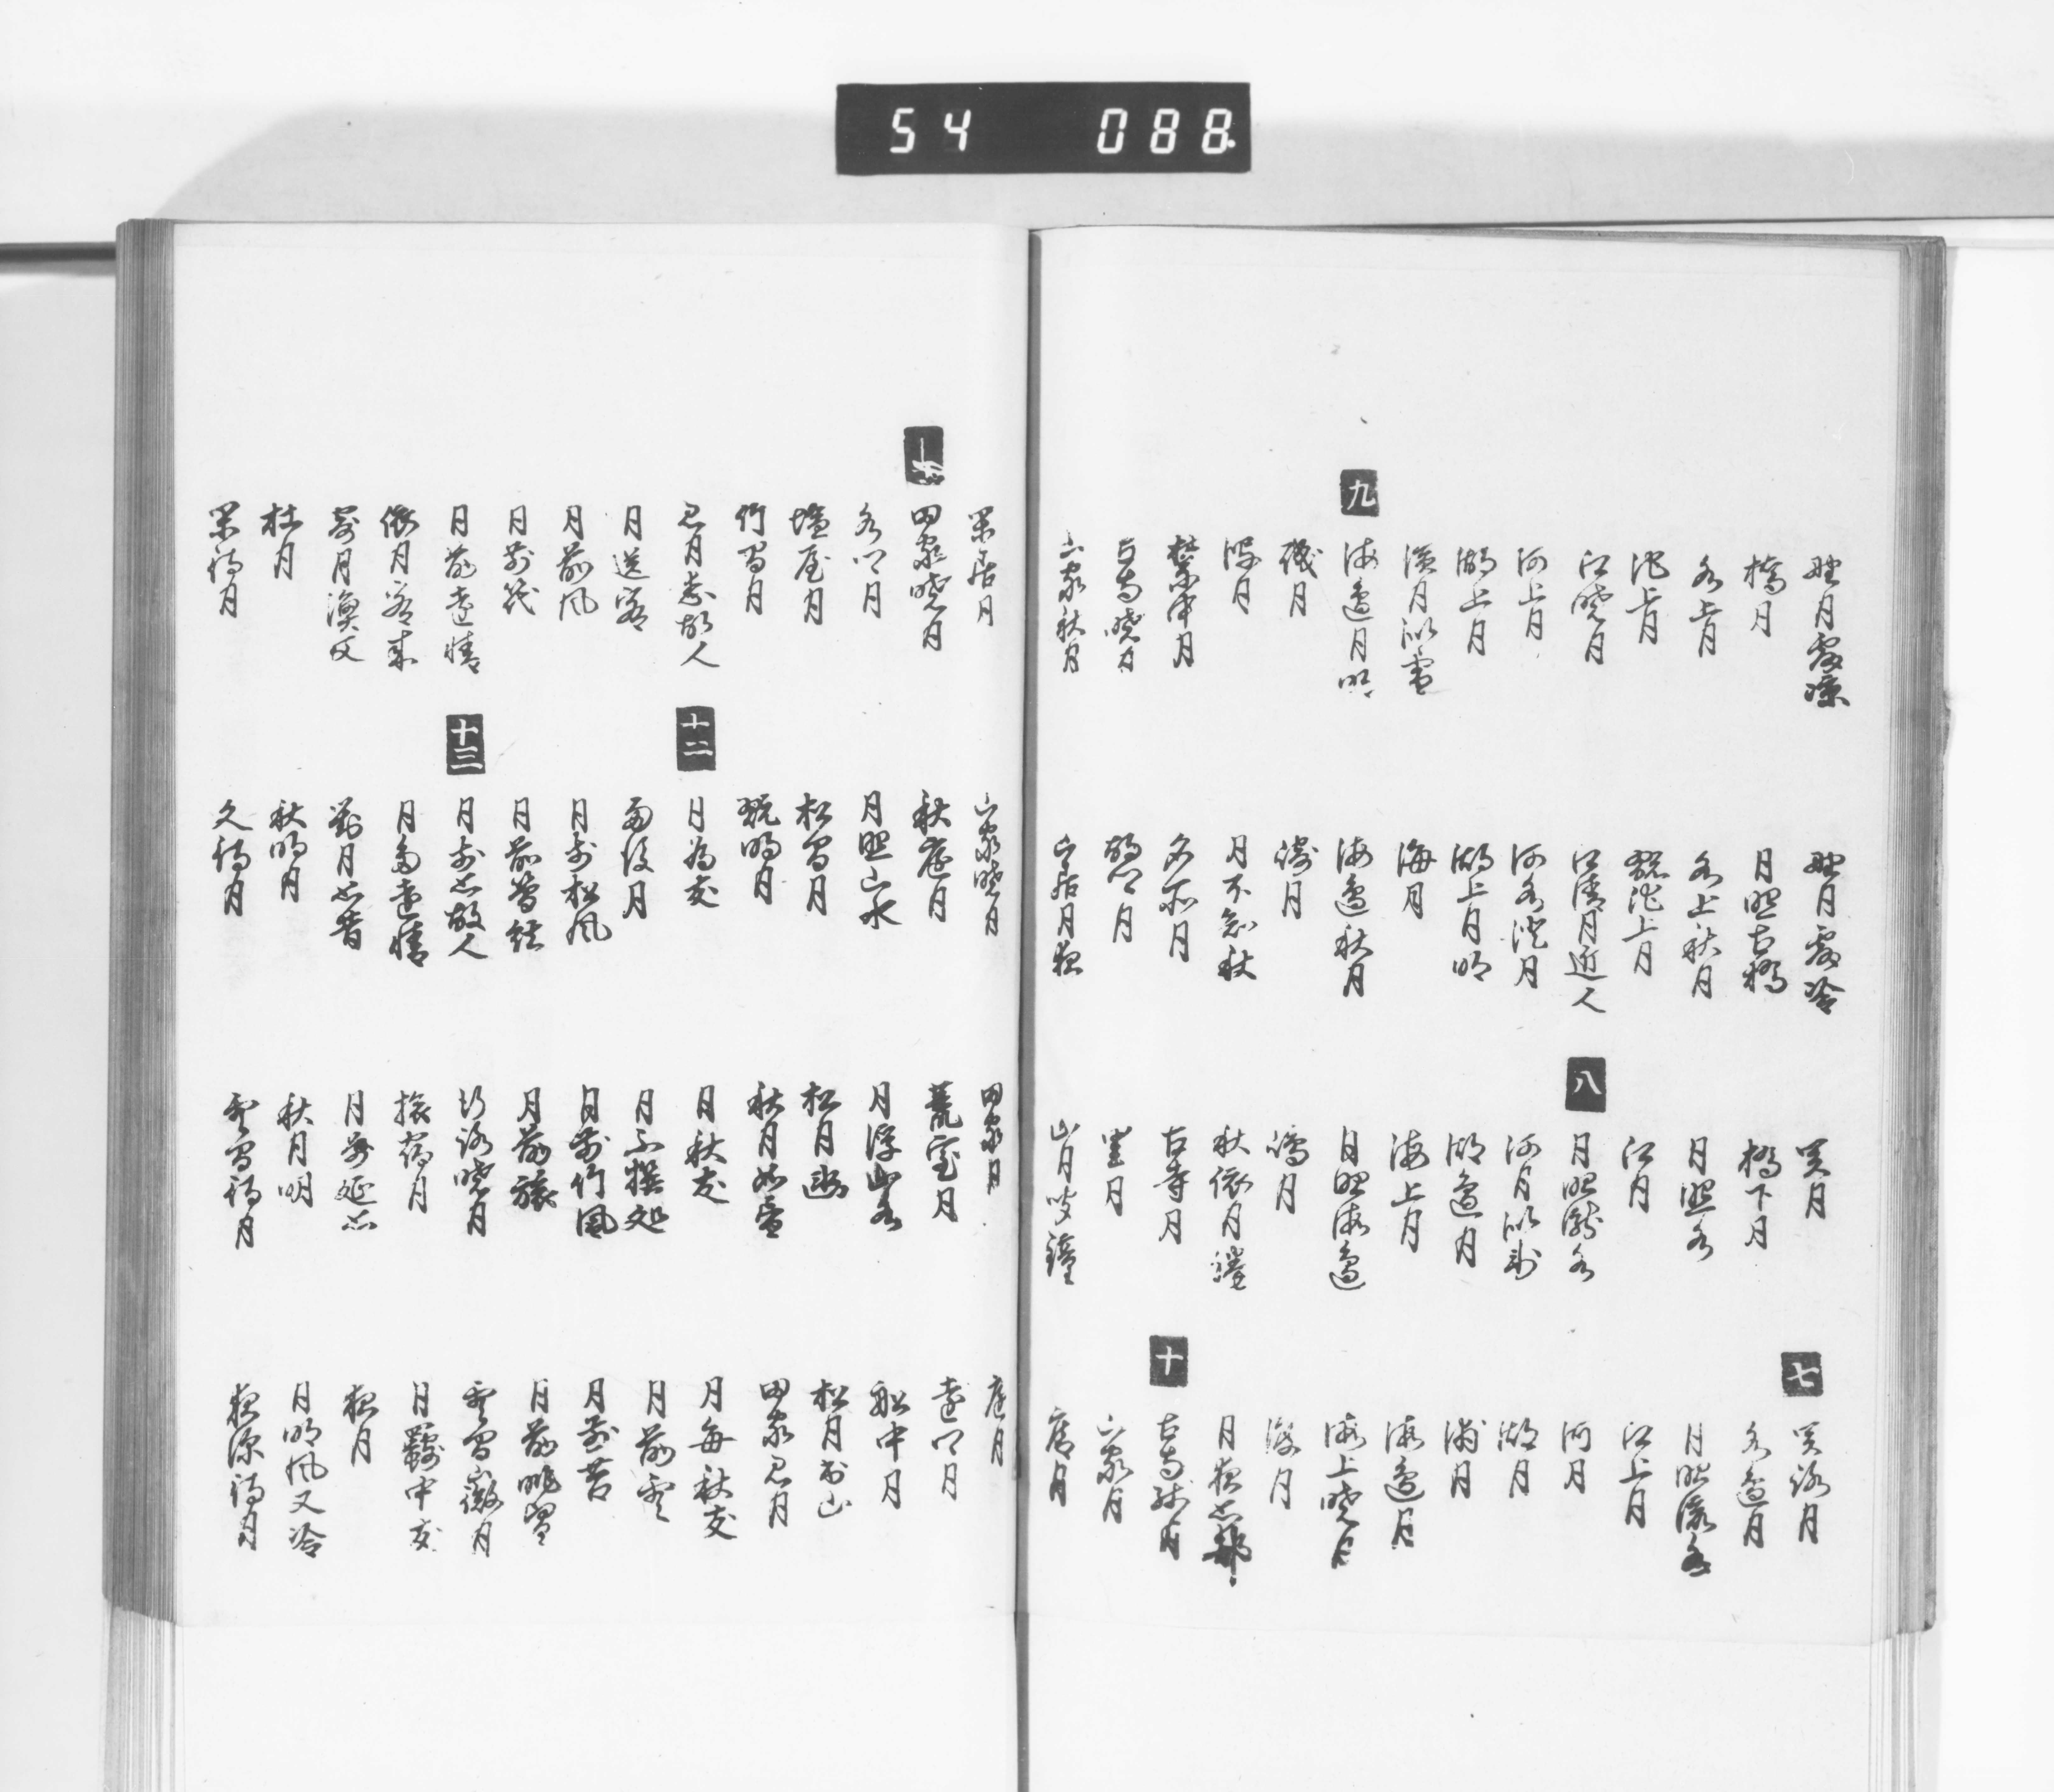 野月露凉　野月露冷　関月　七　関路月
橋月　月照古橋　橋下月　水辺月
水上月　水上秋月　月照水　月照流水
池上月　翫池上月　江月　江上月
江暁月　江清月近人　八　月照瀧水　河月
河上月　河水澄月　河月似氷　湖月
湖上月　湖上月明　湖辺月　浦月
浜月似雪　海月　海上月　海辺月
九　海辺月明　海辺秋月　月照海辺　海上暁月
磯月　嶋月　渡月
月不知秋　月夜思郷
禁中月　名所月　古寺月　十　古寺残月
古寺暁月　里月　山家月
山家秋月　山居月夜
閑居月　山家暁月　田家月　庭月
十一　田家暁月　秋庭月　荒室月
月照山水　月浮山水　船中月
塩屋月　松間月　松月幽　松月出山
竹間月　翫明月　秋月如昼　田家見月
見月恋故人　十二　月為友　月秋友　月毎秋友
月送客　雨後月　月不撰処　月前雲
月前風　月前松風　月前竹風　月前苔
月前旅　月前眺望
月前遠情　十三　月前思故人　行路暁月　雲間微月
依月客来　月多遠情　旅宿月　月羇中友
寄月漁父　対月思昔　夜月
杜月　秋明月　秋月明　月明風又冷
閑待月　久待月　雲間待月　夜深待月
54　088